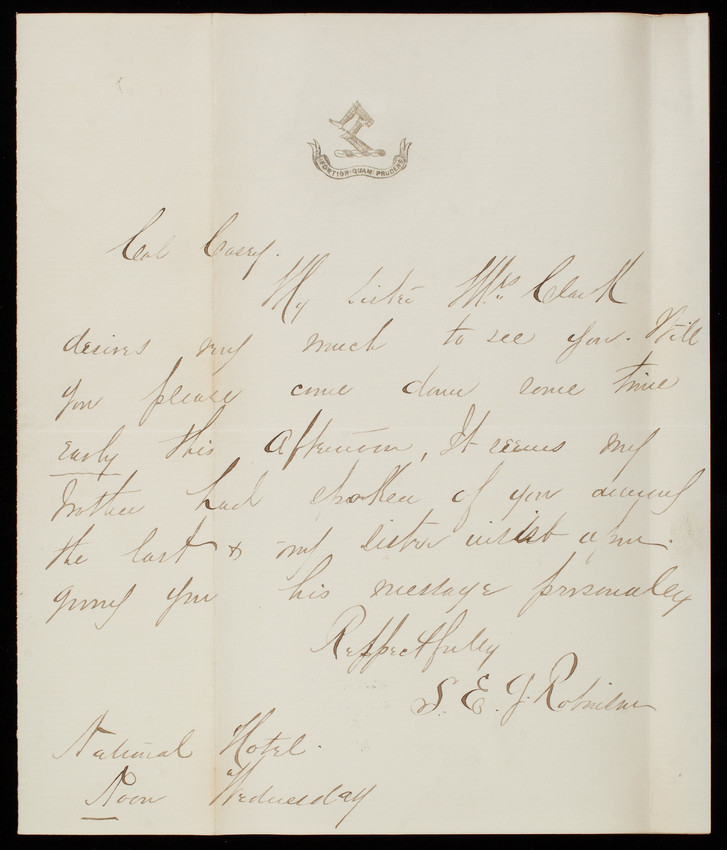 FORTIOR QUAM PRUDENS
Col Casey.
My sister Mrs. Clark
desires very much to see you. Will
you please come down some time
early this afternoon, It seems my
brother had spoken of you during
the last & my sister insist upon
giving you his message personally
Respectfully
S. E. J. Robinson
National Hotel.
Noon Wednesday